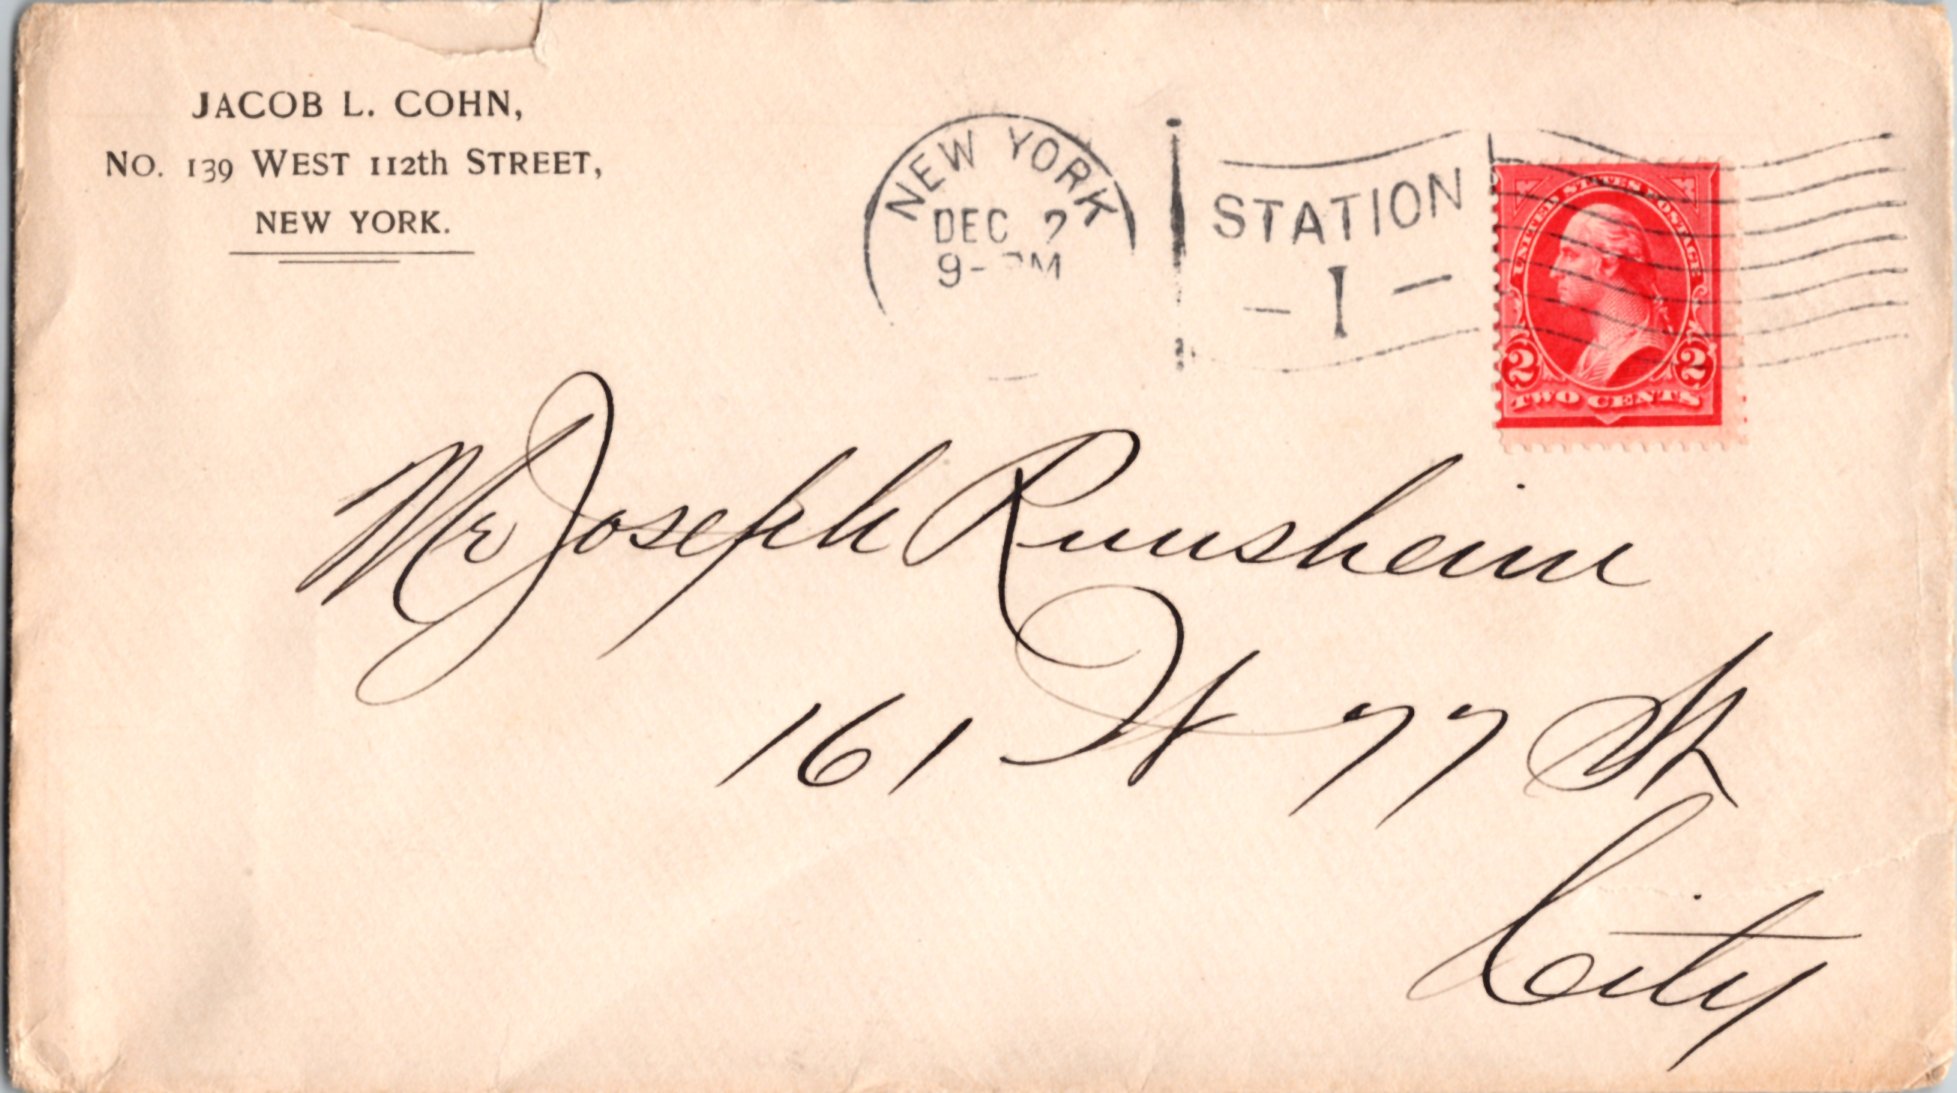 JACOB L. COHN,
No. 139 WEST 112th STREET,
NEW YORK.
NEW YORK
DEC 2
9- PM
STATION
- I -
UNITED STATES POSTAGE
2 2
TWO CENTS
Mr Joseph Runsheim
161 W 77 St
City